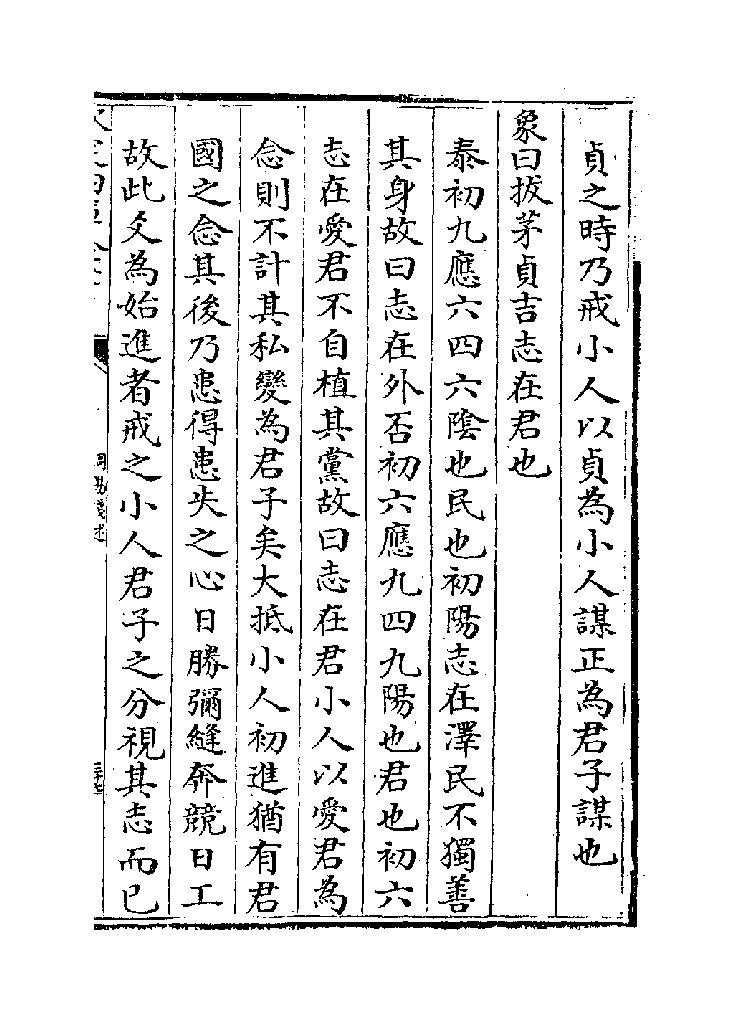 貞之時乃戒小人以貞為小人謀正為君子謀也
象曰拔茅貞吉志在君也
泰初九應六四六陰也民也初陽志在澤民不獨善
其身故曰志在外否初六應九四九陽也君也初六
志在愛君不自植其黨故曰志在君小人以愛君為
念則不計其私變為君子矣大抵小人初進猶有君
國之念其後乃患得患失之心日勝彌縫奔競日工
故此爻為始進者戒之小人君子之分視其志而已